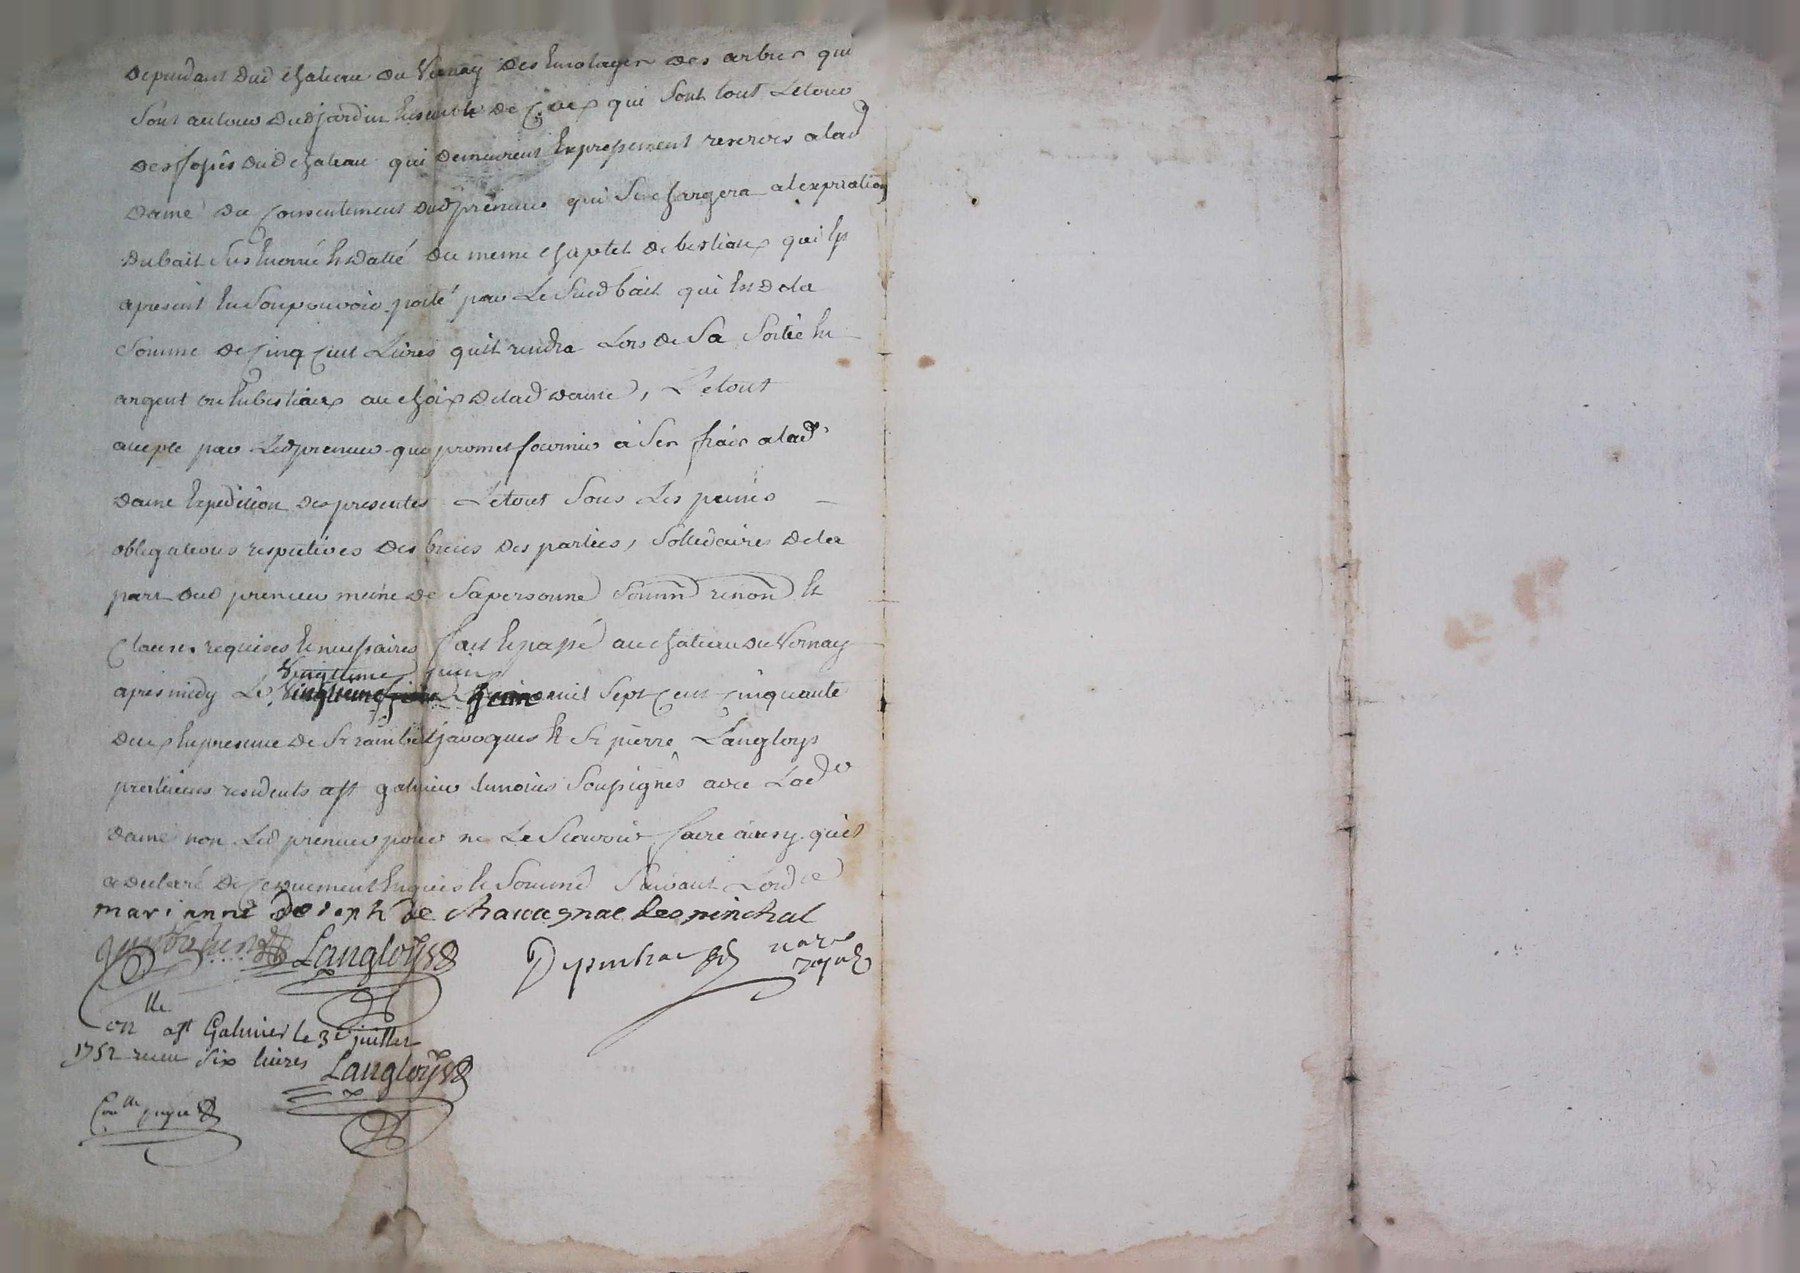 dependant dud chateau du Vernay des emolages des arbres qui
sont autour dud jardin ensemble de ceux qui sont tout letour
des fossés dud chateau qui demeurent expressement reservés alad
dame du consentement dud preneur qui se chargera alexpiration
dubail sus enoncé et datté du meme chaptel de bestiaux qui est
apresent en sonpouvoir porté par le sud bail qui est de la
somme de cinq cent livres quil rendra lors de sa sortie en
argent ou enbestiaux au choix delad dame, letout
accepté par led preneur qui promet fournir à ses frais alad
dame expedition des presentes letout sous les peines
obligations respectives des biens des parties, sollidaires dela
part dud preneur meme de sapersonne soumn renon et
clauses requises et necessaires fait et passé au chateau du Vernay
vingtieme juin
apres midy le mil sept cent cinquante
deux en presence de Sr rambert javogues et Sr pierre Langloys
praticiens residents a st galmier temoins soussignés avec lade
dame non led preneur pour ne le scavoir faire ainsy quil
a declaré de ce duement enquis et sommé suivant lordce
marianne joseph de chauuagnac despinchal
Langloys Depuihac nore royal
onlle a st Galmier le 3e juillet
1752 receu six livres Langloys
Conlle